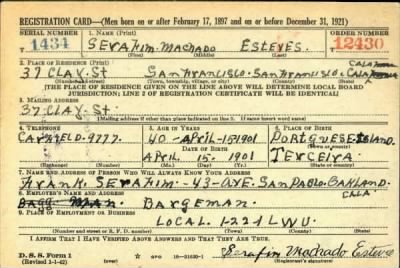 REGISTRATION CARD—(Men born on or after February 17, 1897 and on or before December 31, 1921)
SERIAL NUMBER 1. NAME (Print) ORDER NUMBER
T 1434 SERAFIM. MACHADO ESTEVES. 12430
2. PLACE OF RESIDENCE (Print)
37 CLAY. St SAN FRANCISCO. SAN FRANCISCO. CALA
(Number and street) (Town, township, village, or city) (County) (State)
[THE PLACE OF RESIDENCE GIVEN ON THE LINE ABOVE WILL DETERMINE LOCAL BOARD
JURISDICTION; LINE 2 OF REGISTRATION CERTIFICATE WILL BE IDENTICAL]
3. MAILING ADDRESS
37 CLAY. St.
[Mailing address if other than place indicated on line 2. If same insert word same]
4. TELEPHONE 5. AGE IN YEARS 6. PLACE OF BIRTH
GARFIELD. 9777. 40 - APRIL - 15 1901 PORTGUESE ISLAND.
DATE OF BIRTH (Town or county)
APRIL. 15. 1901 TERCEIRA.
(Exchange) (Number) (Mo.) (Day) (Yr.) (State or country)
7. NAME AND ADDRESS OF PERSON WHO WILL ALWAYS KNOW YOUR ADDRESS
FRANK SERAFIM - 43 - AVE. SAN PABLO. OAKLAND.
8. EMPLOYER'S NAME AND ADDRESS CALA
BARGEMAN.
9. PLACE OF EMPLOYMENT OR BUSINESS
LOCAL. 1-221 L W U.
(Number and street or R. F. D. number) (Town) (County) (State)
I AFFIRM THAT I HAVE VERIFIED ABOVE ANSWERS AND THAT THEY ARE TRUE.
D. S. S. Form 1
(Revised 1-1-42) GPO 16—21630-1 Serafim Machado Esteves
(Registrant's signature)